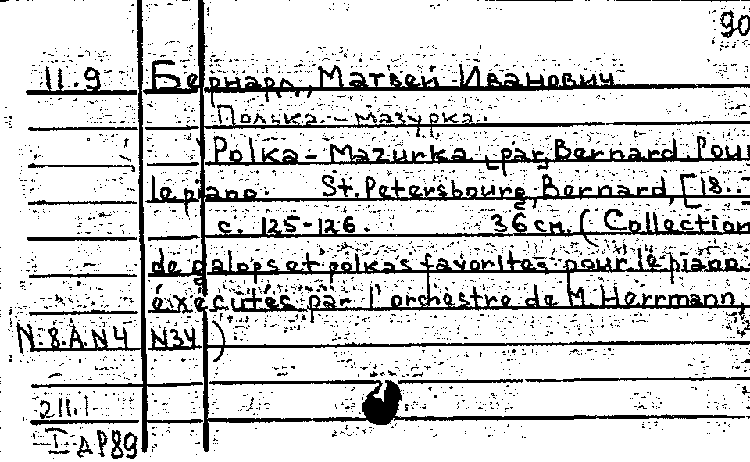 90
11.9 Бернард, Матвей Иванович
Полька - мазурка.
Polka - Mazurka par Bernard. Pour
le piano. St. Petersbourg, Bernard, [18..]
с. 125-126. 36 см. ( Collection
de galops et polkas favorites pour le piano
éxécutés par l'orchestre de M. Herrmann,
N:8.A.N4 N34 )
211.1
I AP89